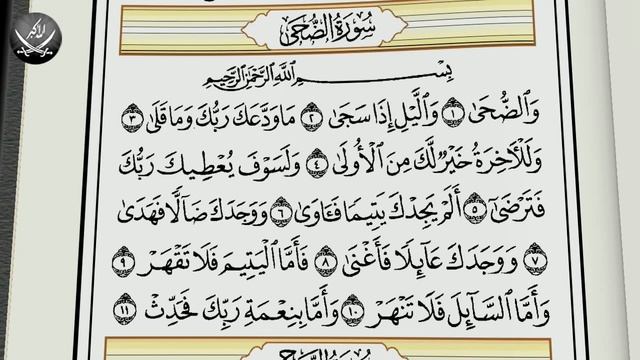 سُورَةُ الضُّحَىٰ
بِسْمِ اللَّهِ الرَّحْمَٰنِ الرَّحِيمِ
وَالضُّحَىٰ ١ وَاللَّيْلِ إِذَا سَجَىٰ ٢ مَا وَدَّعَكَ رَبُّكَ وَمَا قَلَىٰ ٣
وَلَلْآخِرَةُ خَيْرٌ لَّكَ مِنَ الْأُولَىٰ ٤ وَلَسَوْفَ يُعْطِيكَ رَبُّكَ
فَتَرْضَىٰ ٥ أَلَمْ يَجِدْكَ يَتِيمًا فَـَٔاوَىٰ ٦ وَوَجَدَكَ ضَآلًّا فَهَدَىٰ
٧ وَوَجَدَكَ عَآئِلًا فَأَغْنَىٰ ٨ فَأَمَّا الْيَتِيمَ فَلَا تَقْهَرْ ٩
وَأَمَّا السَّآئِلَ فَلَا تَنْهَرْ ١٠ وَأَمَّا بِنِعْمَةِ رَبِّكَ فَحَدِّثْ ١١